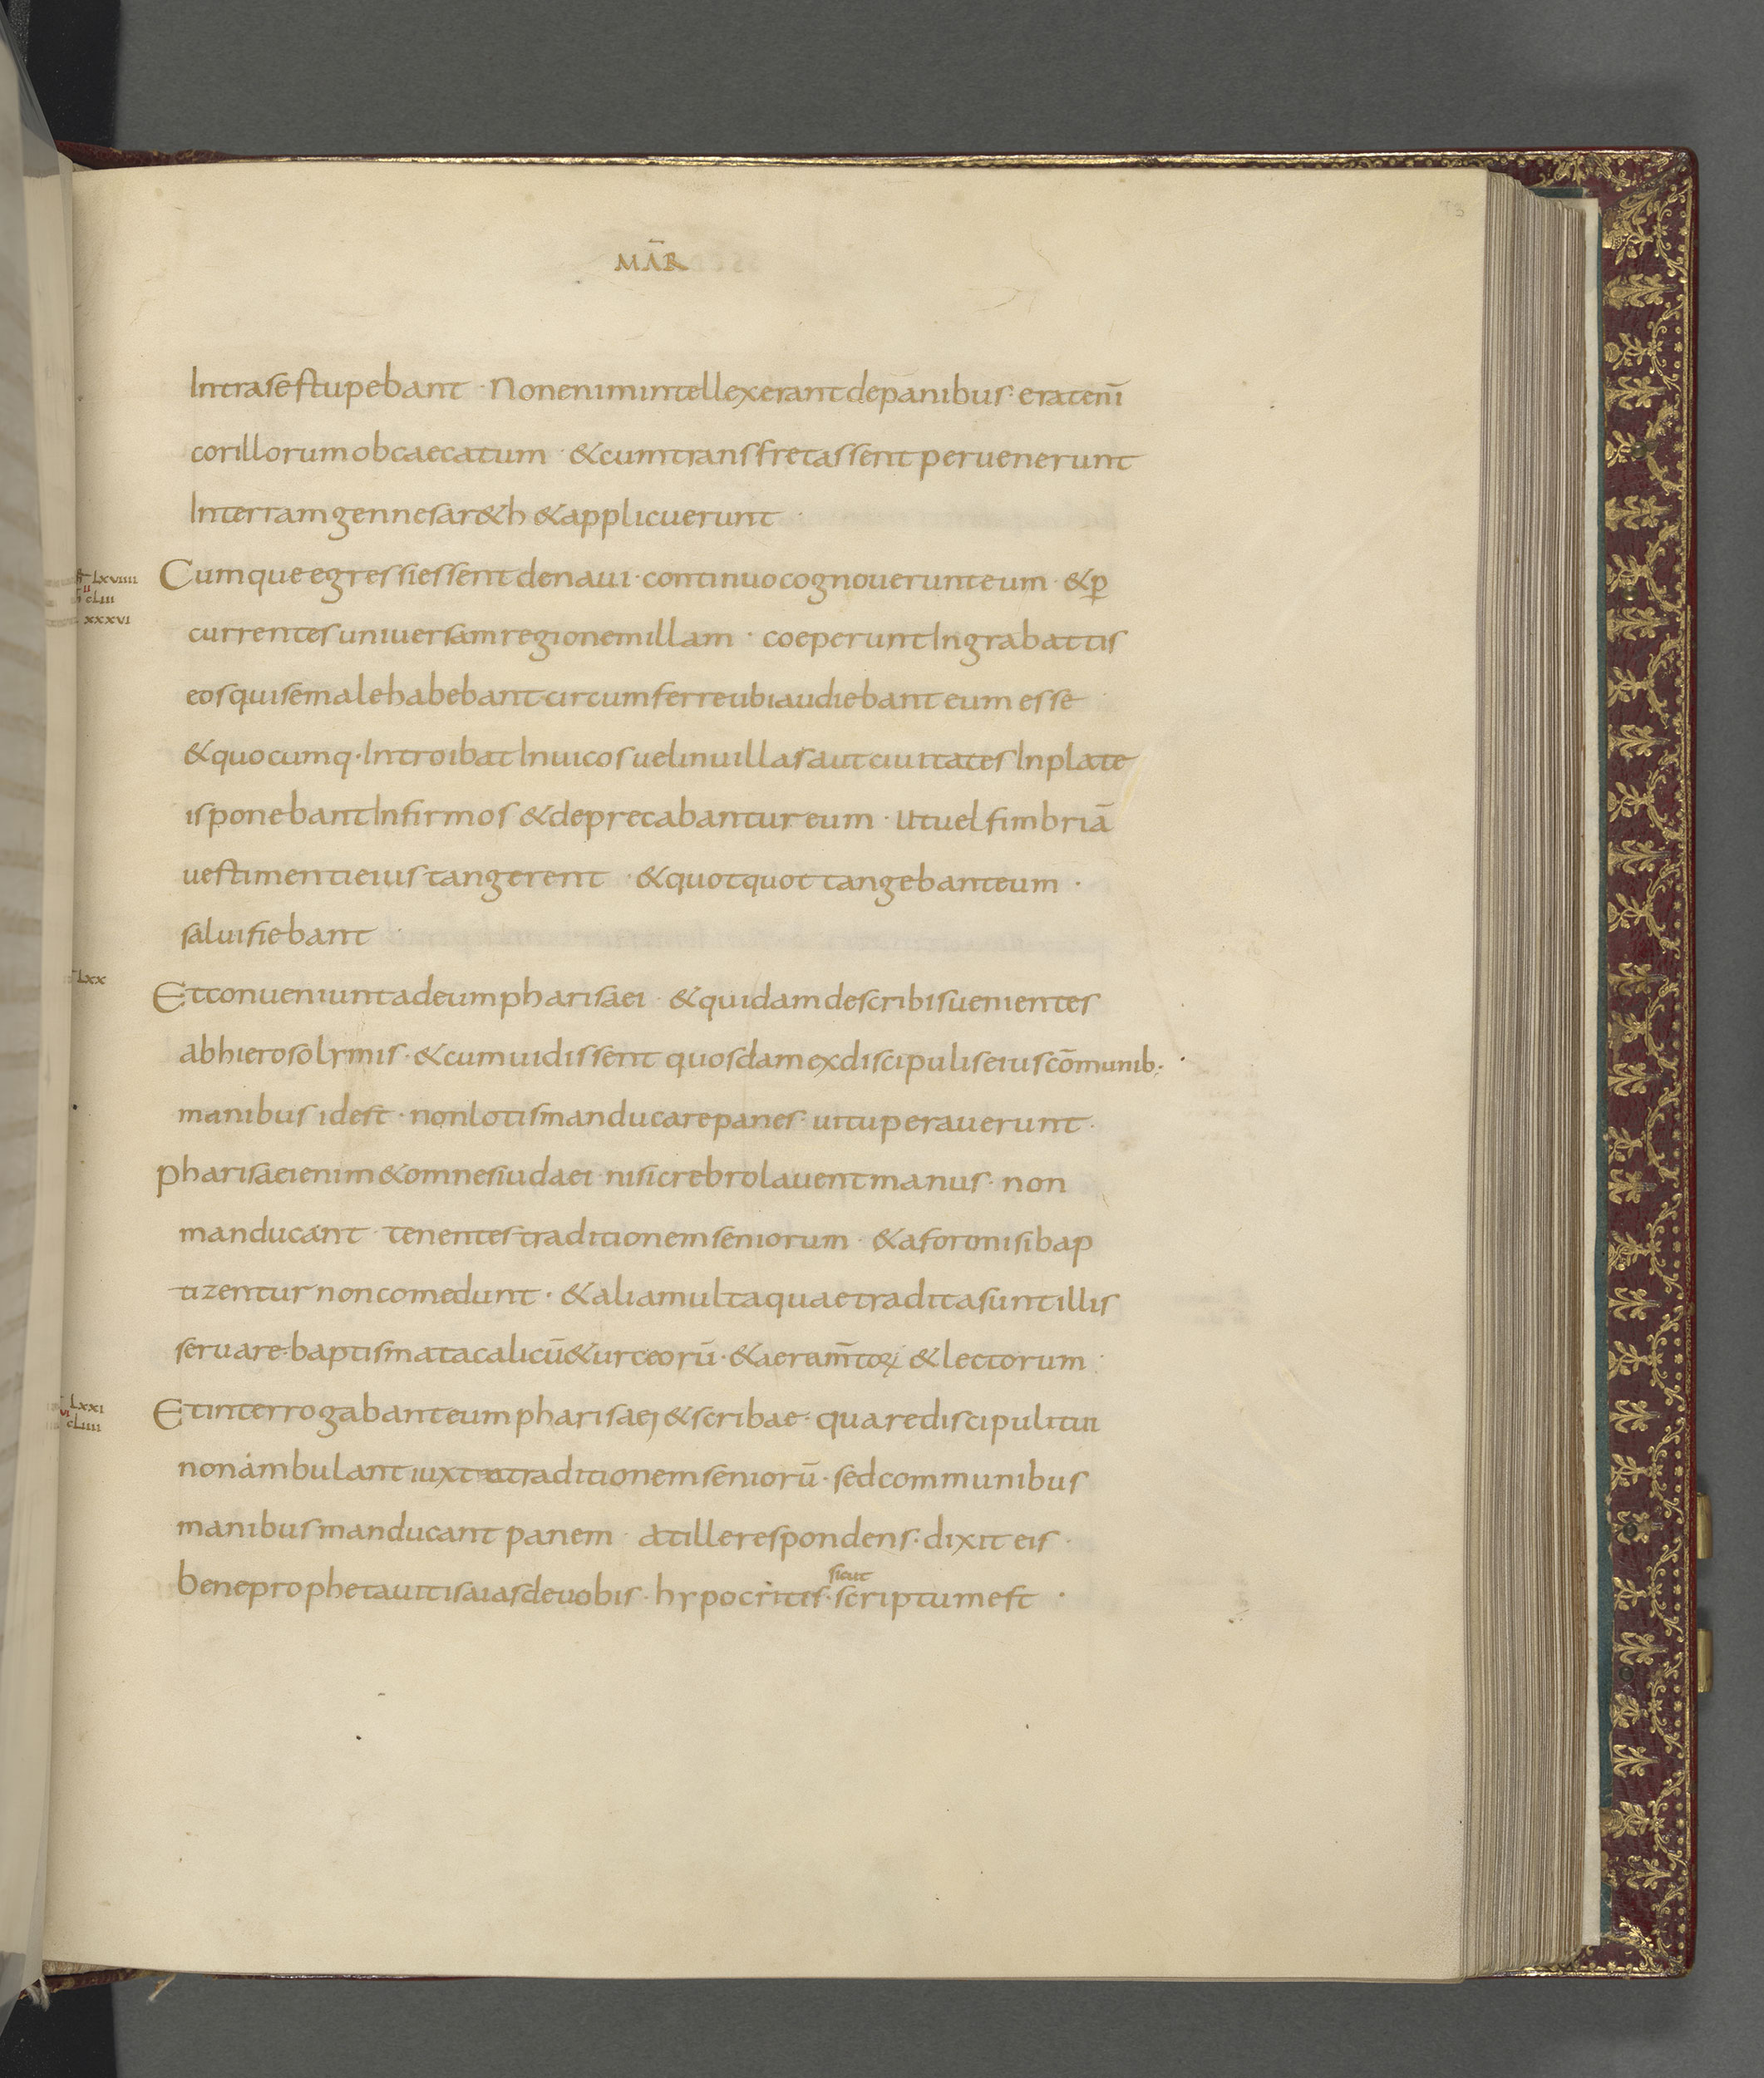 73
MĀR
Intra se stupebant · Non enim intellexerant de panibus · erat enī
cor illorum obcaecatum · & cum transfretassent peruenerunt
In terram gennesar&h & applicuerunt ·
LXVIIII
II
CLIII
XXXVI
Cumque egressi essent de naui · continuo cognouerunt eum · & ꝑ
currentes uniuersam regionem illam · coeperunt In grabattis
eos qui se male habebant circumferre ubi audiebant eum esse
& quocumq· Introibat In uicos uel in uillas aut ciuitates In plate
is ponebant Infirmos & deprecabantur eum · Ut uel fimbriā
uestimenti eius tangerent · & quotquot tangebant eum ·
salui fiebant ·
LXX
Et conueniunt ad eum pharisaei · & quidam de scribis uenientes
ab hierosolymis · & cum uidissent quosdam ex discipulis eius cōmunib;
manibus id est · non lotis manducare panes · uituperauerunt ·
Pharisaei enim & omnes iudaei · nisi crebro lauent manus · non
manducant · tenentes traditionem seniorum · & a foro nisi bap
tizentur non comedunt · & alia multa quae tradita sunt illis
seruare · baptismata calicū & urceorū · & aeram̄toꝝ & lectorum ·
LXXI
VI
CLIIII
Et interrogabant eum pharisaei & scribae · quare discipuli tui
non ambulant iuxta traditionem seniorū · sed communibus
manibus manducant panem · at ille respondens · dixit eis ·
bene prophetauit isaias de uobis · hypocritis · sicut scriptum est ·